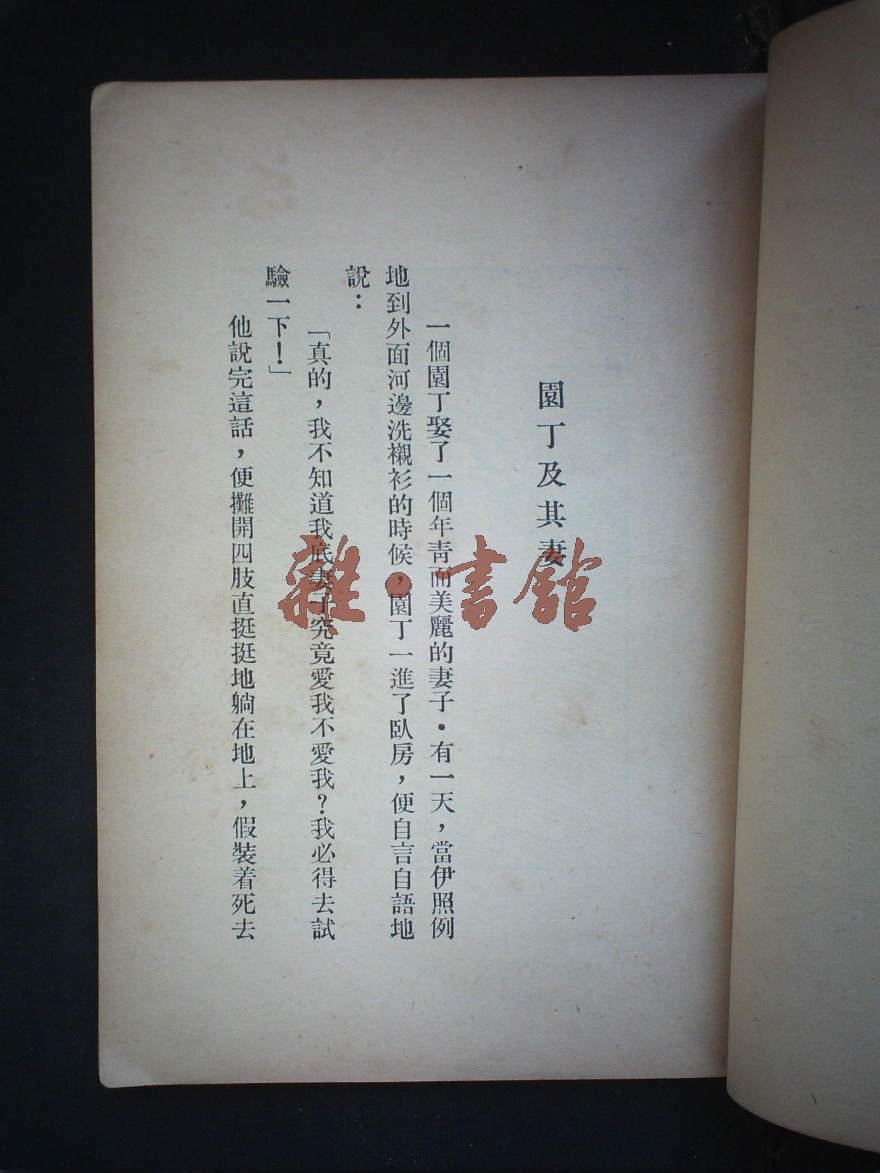 園丁及其妻
一個園丁娶了一個年靑而美麗的妻子．有一天，當伊照例
地到外面河邊洗襯衫的時候，園丁一進了臥房，便自言自語地
說：
「真的，我不知道我底妻子究竟愛我不愛我？我必得去試
驗一下！」
他說完這話，便攤開四肢直挺挺地躺在地上，假裝着死去
雜·書館